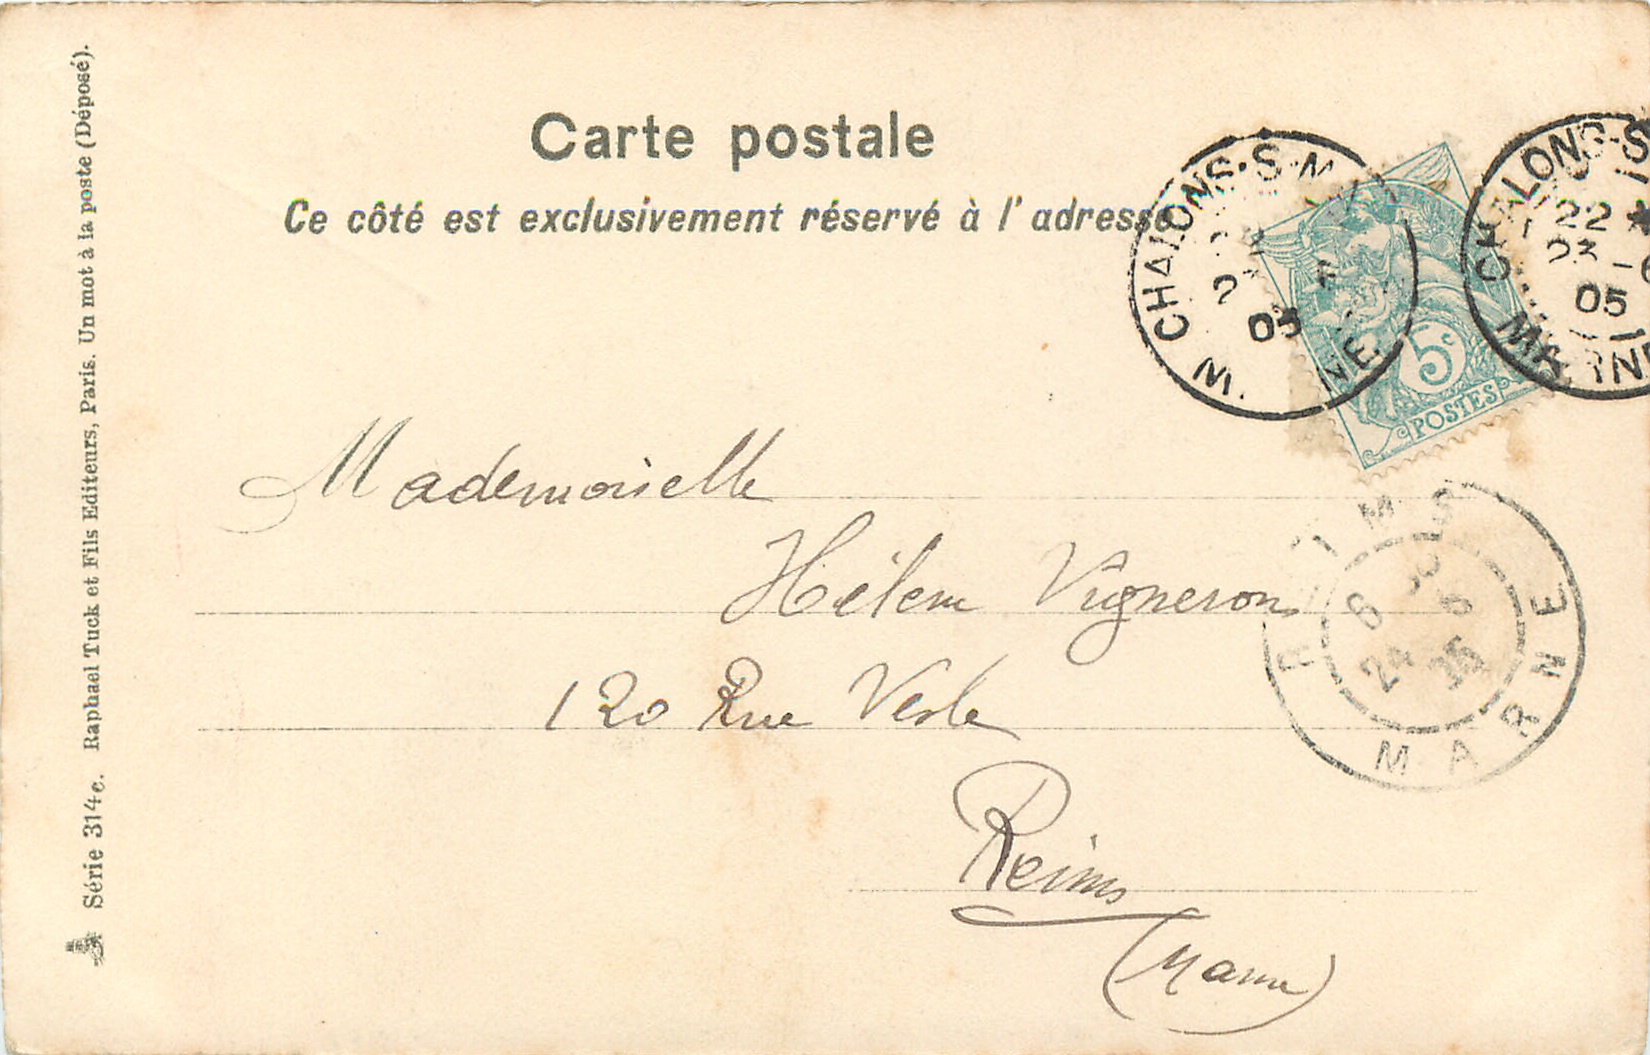 Carte postale
Ce côté est exclusivement réservé à l'adresse
CHALONS-S-M
05
CHALONS-S
22 *
23 - 6
05
MARNE
5c
POSTES
Mademoiselle
Hélène Vigneron
120 Rue Vesle
Reims
(Marne)
REIMS
6 SOIR
24 6
05
MARNE
Série 314c. Raphael Tuck et Fils Editeurs, Paris. Un mot à la poste (Déposé).